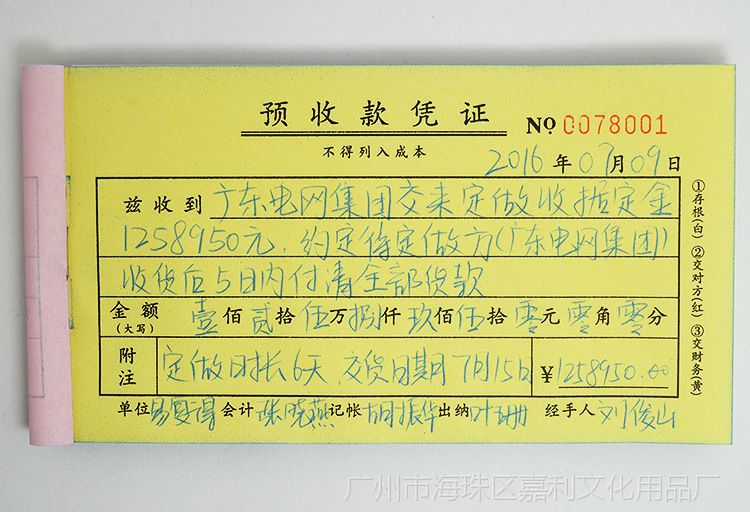 预收款凭证
NO 0078001
不得列入成本
2016年07月09日
兹收到广东电网集团交来定做收据定金
1258950元,约定待定做方(广东电网集团)
收货后5日内付清全部货款
金额(大写)壹佰贰拾伍万捌仟玖佰伍拾零元零角零分
附注 定做时长6天,交货日期7月15日 ¥1258950.00
单位易复得 会计张晓燕 记帐胡振华 出纳叶珊 经手人刘俊山
①存根(白) ②交对方(红) ③交财务(黄)
广州市海珠区嘉利文化用品厂